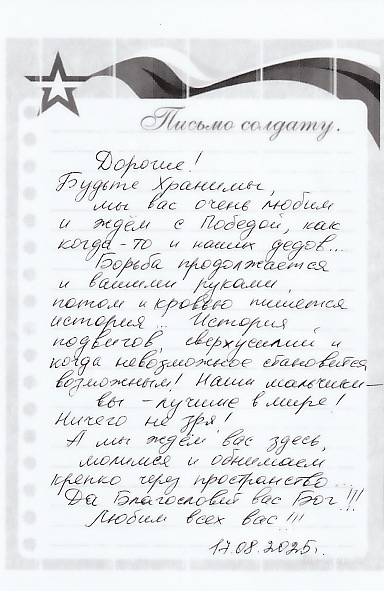 Письмо солдату.
Дорогие!
Будьте Хранимы,
мы вас очень любим
и ждём с Победой, как
когда-то и наших дедов...
Борьба продолжается
и вашими руками,
потом и кровью пишется
история... История
подвигов, сверхусилий и
когда невозможное становится
возможным! Наши мальчики —
вы - лучшие в мире!
Ничего не зря!
А мы ждём вас здесь,
молимся и обнимаем
крепко через пространство...
Да Благословит вас Бог!!!
Любим всех вас!!!
17.08.2025г.